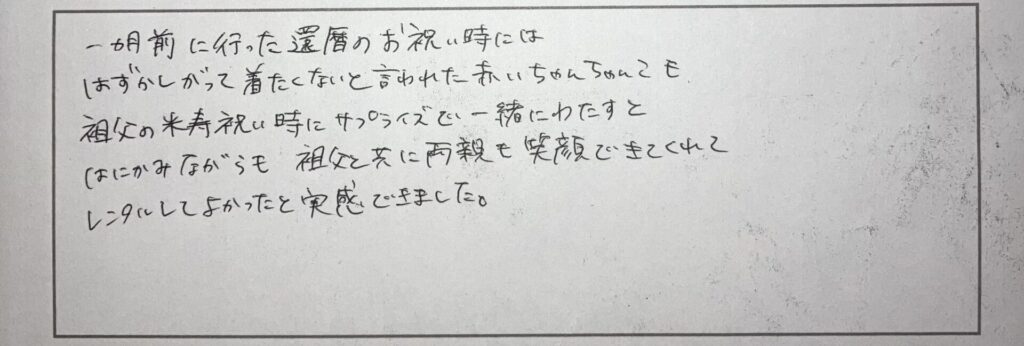 一ヵ月前に行った還暦のお祝い時には
はずかしがって着たくないと言われた赤いちゃんちゃんこも
祖父の米寿祝い時にサプライズで一緒にわたすと
はにかみながらも 祖父と共に両親も笑顔できてくれて
レンタルしてよかったと実感できました。